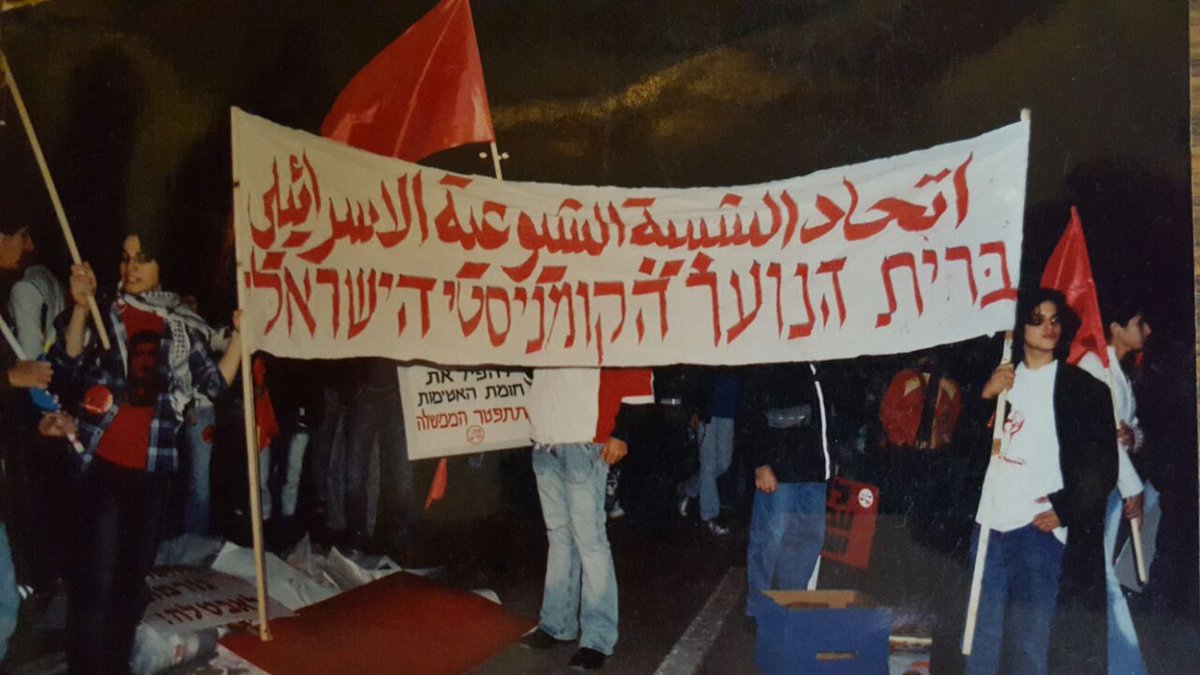 اتحاد الشبيبة الشيوعية الاسرائيلي
ברית הנוער הקומניסטי הישראלי
להפיל את
חומת האטימות
תתפטר הממשלה